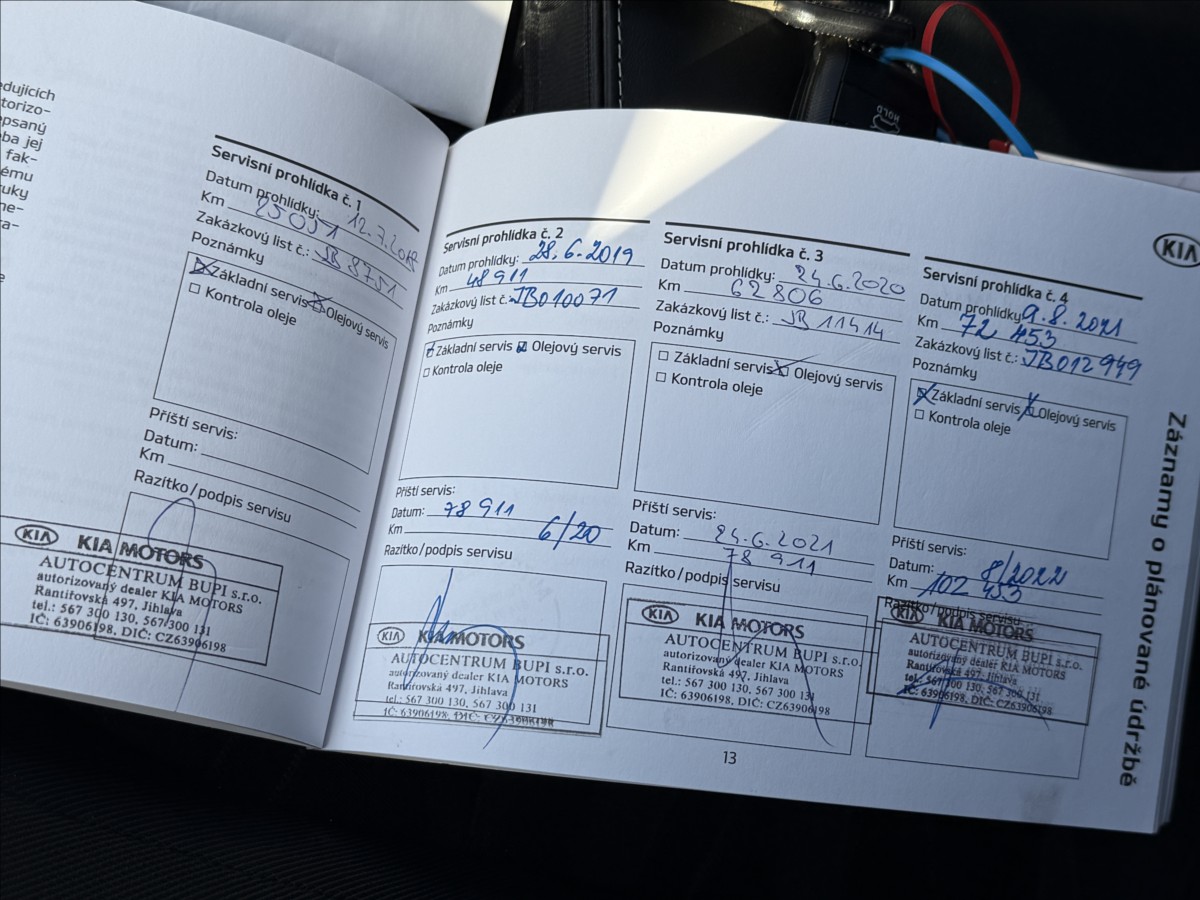 dujících
torizo-
epsaný
ba jej
fak-
ému
uky
ne-
ra-
e
Servisní prohlídka č. 1
Datum prohlídky: 12.7.2018
Km 25051
Zakázkový list č.: JB 8751
Poznámky
Základní servis Olejový servis
Kontrola oleje
Příští servis:
Datum:
Km
Razítko/podpis servisu
KIA KIA MOTORS
AUTOCENTRUM BUPI s.r.o.
autorizovaný dealer KIA MOTORS
Rantířovská 497, Jihlava
tel.: 567 300 130, 567 300 131
IČ: 63906198, DIČ: CZ63906198
Servisní prohlídka č. 2
Datum prohlídky: 28.6.2019
Km 48911
Zakázkový list č.: JB010071
Poznámky
Základní servis Olejový servis
Kontrola oleje
Příští servis:
Datum: 78 911
Km 6/20
Razítko/podpis servisu
KIA KIA MOTORS
AUTOCENTRUM BUPI s.r.o.
autorizovaný dealer KIA MOTORS
Rantířovská 497, Jihlava
tel.: 567 300 130, 567 300 131
IČ: 63906198, DIČ: CZ63906198
Servisní prohlídka č. 3
Datum prohlídky: 24.6.2020
Km 62806
Zakázkový list č.: JB 11414
Poznámky
Základní servis Olejový servis
Kontrola oleje
Příští servis:
Datum: 24.6.2021
Km 78 911
Razítko/podpis servisu
KIA KIA MOTORS
AUTOCENTRUM BUPI s.r.o.
autorizovaný dealer KIA MOTORS
Rantířovská 497, Jihlava
tel.: 567 300 130, 567 300 131
IČ: 63906198, DIČ: CZ63906198
Servisní prohlídka č. 4
Datum prohlídky: 9.8.2021
Km 72 453
Zakázkový list č.: JB012949
Poznámky
Základní servis Olejový servis
Kontrola oleje
Příští servis:
Datum: 8/2022
Km 102 453
Razítko/podpis servisu
KIA KIA MOTORS
AUTOCENTRUM BUPI s.r.o.
autorizovaný dealer KIA MOTORS
Rantířovská 497, Jihlava
tel.: 567 300 130, 567 300 131
IČ: 63906198, DIČ: CZ63906198
KIA
Záznamy o plánované údržbě
13
HOLD